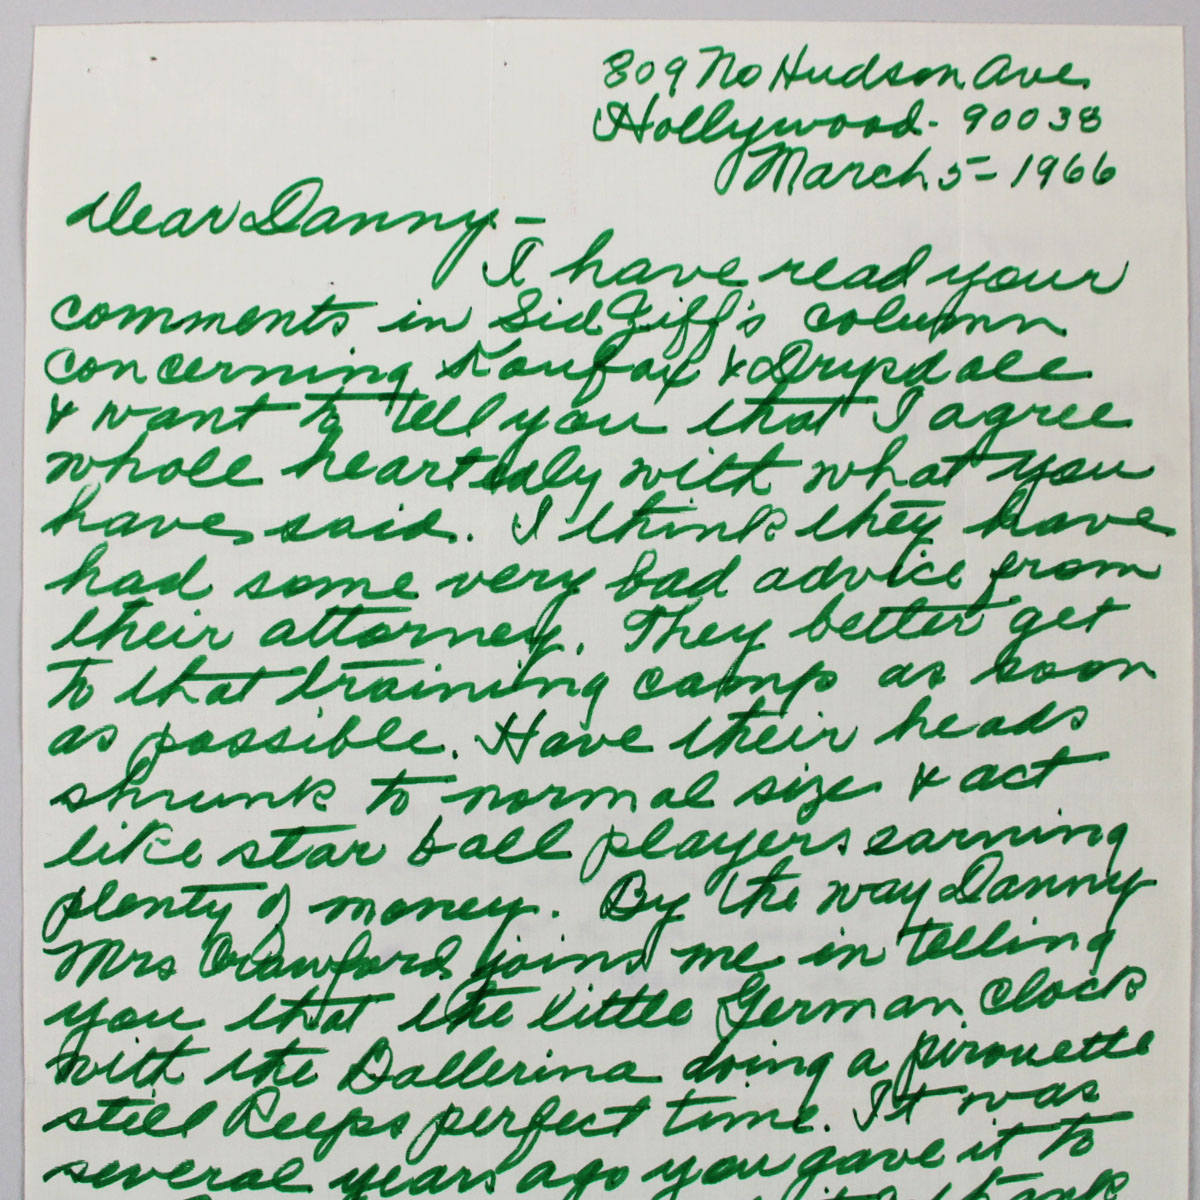 809 No Hudson Ave.
Hollywood - 90038
March 5 - 1966
Dear Danny -
I have read your
comments in Sid Ziff's column
concerning Koufax & Drysdale
& want to tell you that I agree
whole heartedly with what you
have said. I think they have
had some very bad advice from
their attorney. They better get
to that training camp as soon
as possible. Have their heads
shrunk to normal size & act
like star ball players earning
plenty of money. By the way Danny
Mrs Crawford joins me in telling
you that the little German clock
with the Ballerina doing a pirouette
still keeps perfect time. It was
several years ago you gave it to